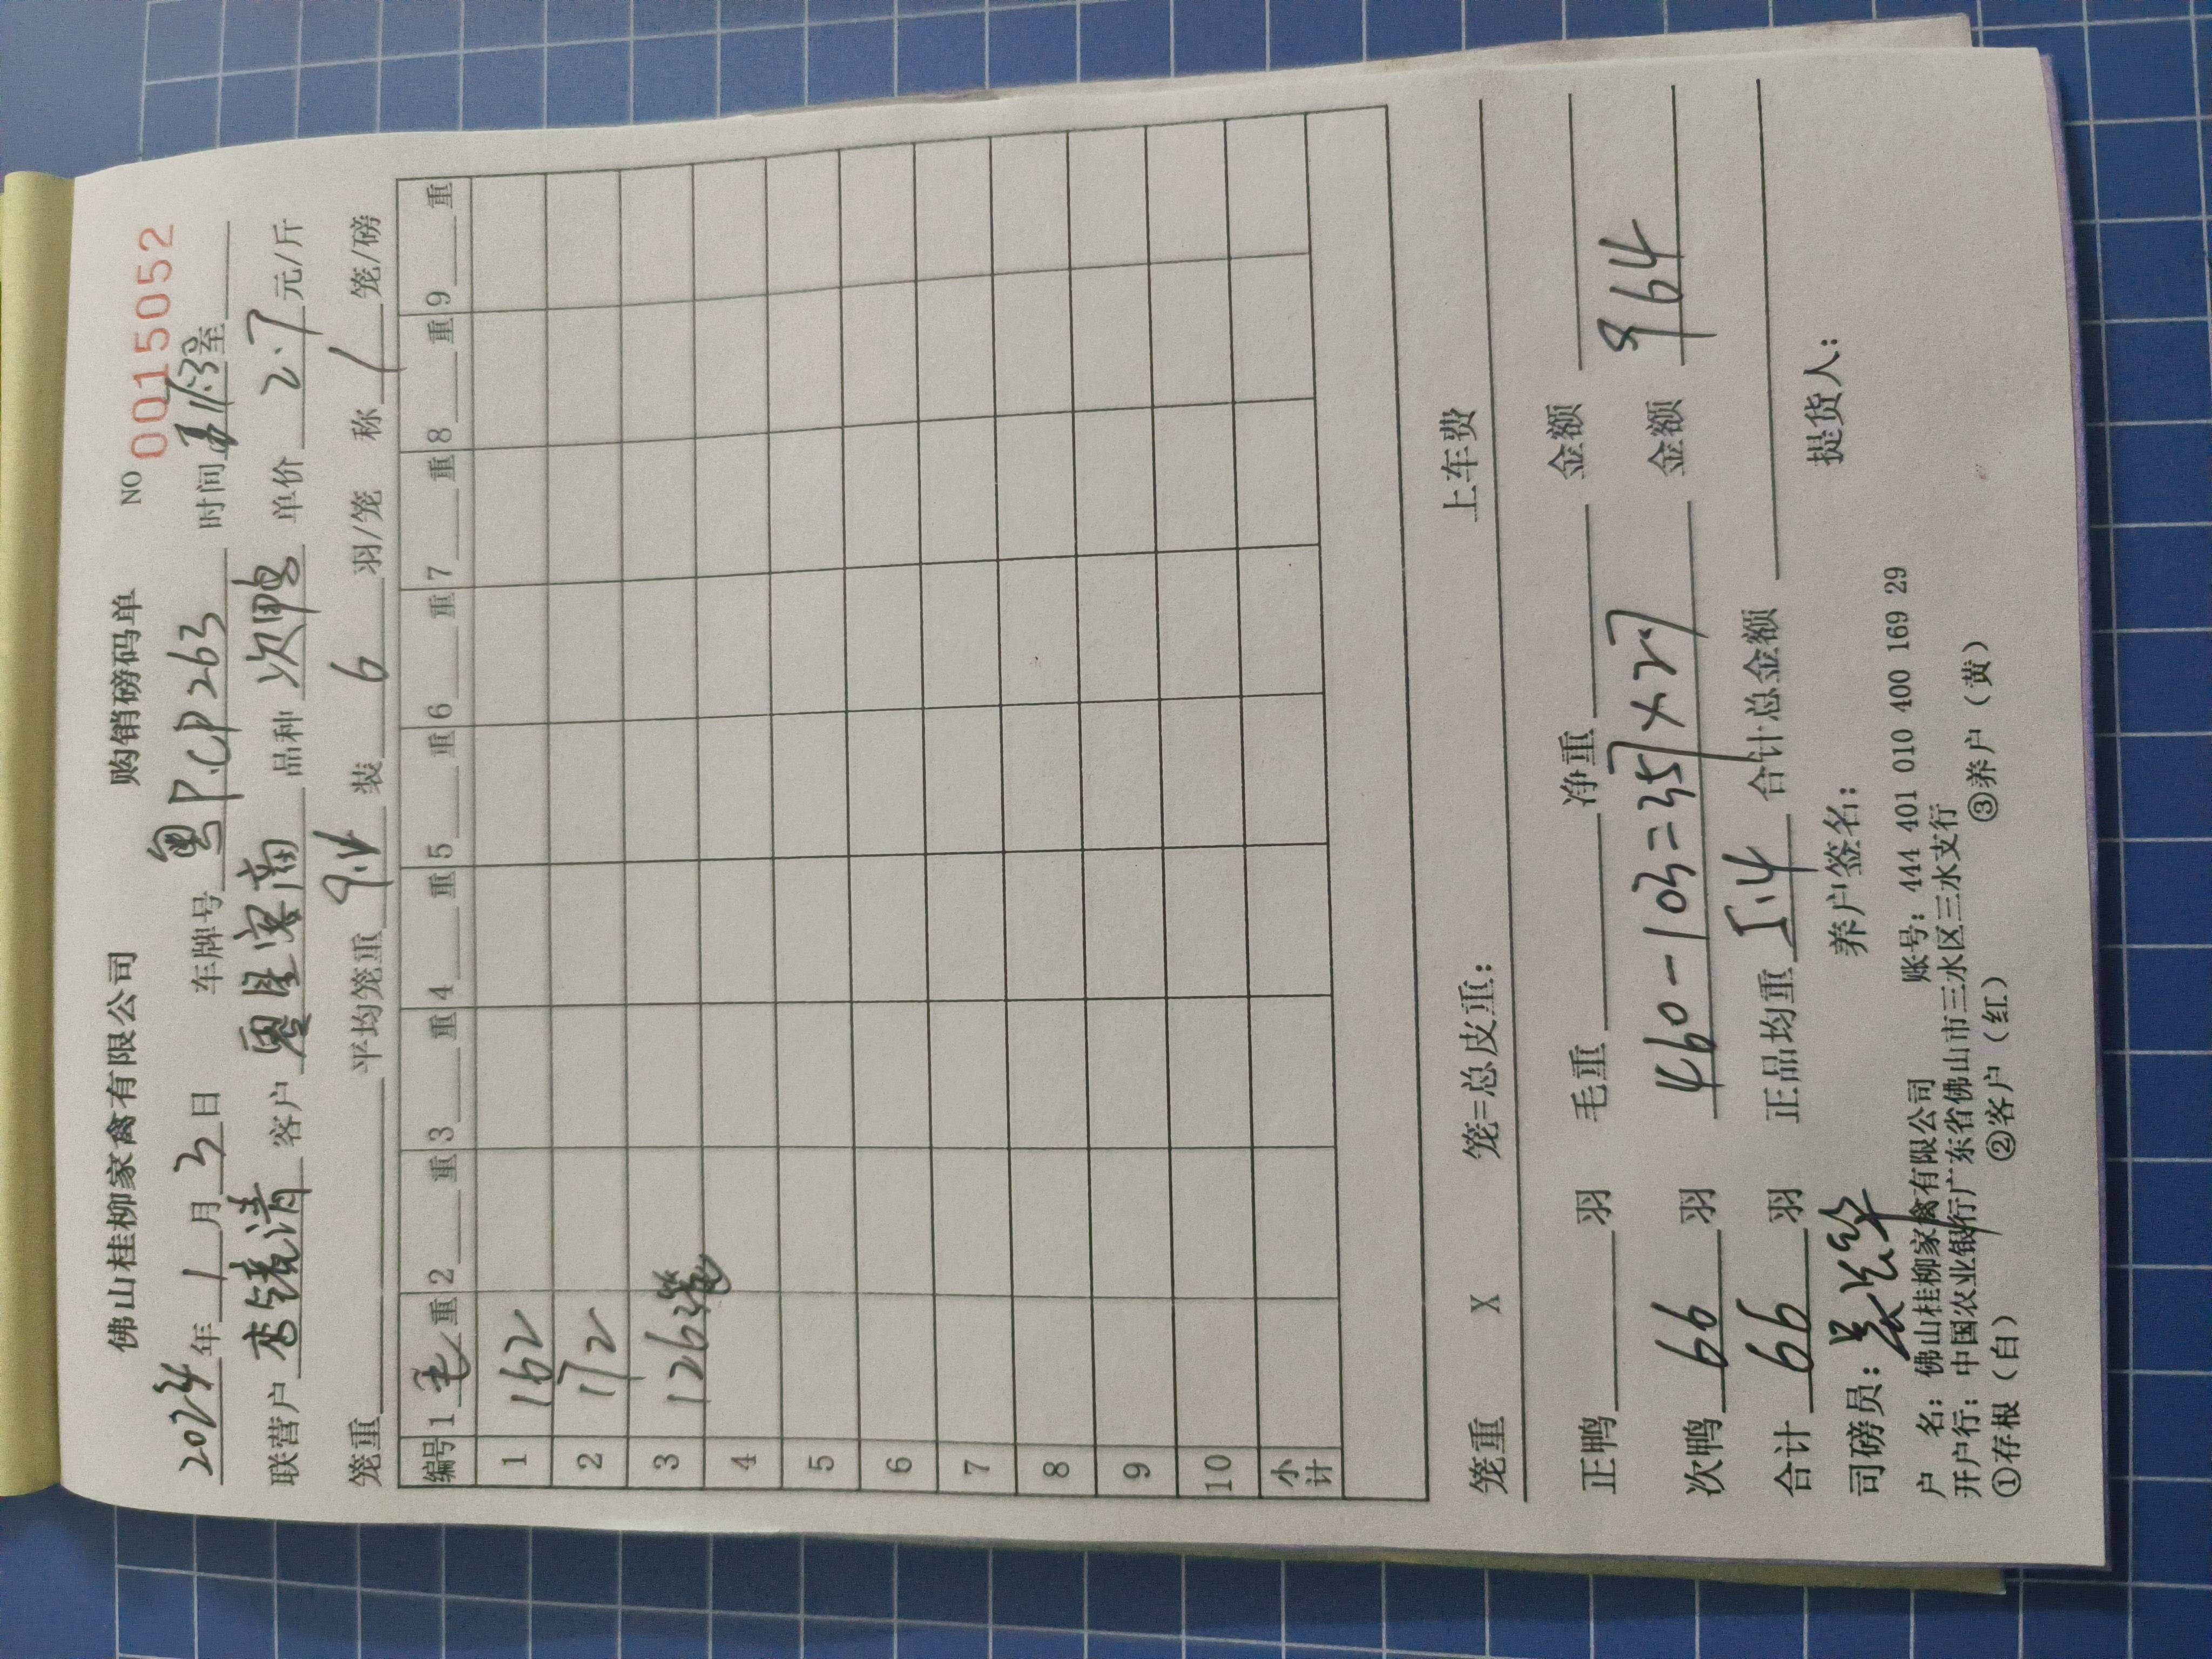 佛山桂柳家禽有限公司 购销磅码单 NO 0015052
2024年1月3日 车牌号 粤P.CP263 时间 至
联营户 李镜清 客户 客商 品种 次鸭 单价 2.7 元/斤
笼重 平均笼重 9.4 装 6 羽/笼 称 1 笼/磅
编号 1 毛 重 2 重 3 重 4 重 5 重 6 重 7 重 8 重 9 重
1 162
2 172
3 126
4
5
6
7
8
9
10
小计
笼重 X 笼=总皮重: 上车费
正鸭 羽 毛重 净重 金额
次鸭 66 羽 460-103=357×2.7 金额 964
合计 66 羽 正品均重 5.4 合计总金额
司磅员: 养户签名: 提货人:
户 名: 佛山桂柳家禽有限公司 账号: 444 401 010 400 169 29
开户行: 中国农业银行广东省佛山市三水区三水支行
①存根(白) ②客户(红) ③养户(黄)